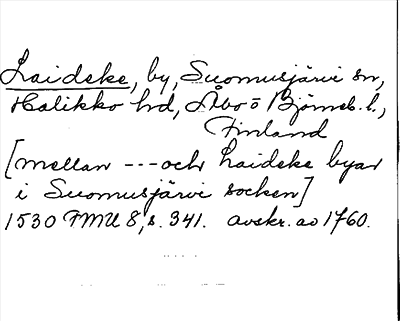 Laideke, by, Suomusjärvi sn,
Halikko hd, Åbo o Björneb. l.,
Finland
[mellan --- och Laideke byar
i Suomusjärvi socken]
1530 FMU 8, s. 341. avskr. av 1760.